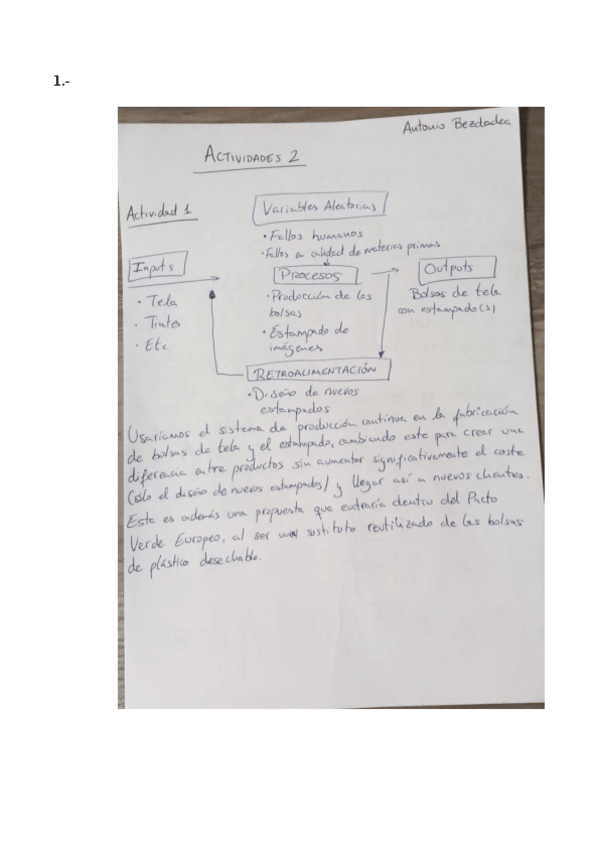 1.-
Antonio Bezdadea
ACTIVIDADES 2
Actividad 1
Variables Aleatorias
• Fallos humanos
• Fallos en calidad de materias primas
Inputs
PROCESOS
Outputs
• Tela
• Tintes
• Etc
• Producción de las
bolsas
• Estampado de
imágenes
Bolsas de tela
con estampado(s)
RETROALIMENTACIÓN
• Diseño de nuevos
estampados
Usaríamos el sistema de producción continua en la fabricación
de bolsas de tela y el estampado, cambiando este para crear una
diferencia entre productos sin aumentar significativamente el coste
(solo el diseño de nuevos estampados) y llegar así a nuevos clientes.
Esta es además una propuesta que entraría dentro del Pacto
Verde Europeo, al ser un sustituto reutilizado de las bolsas
de plástico desechable.